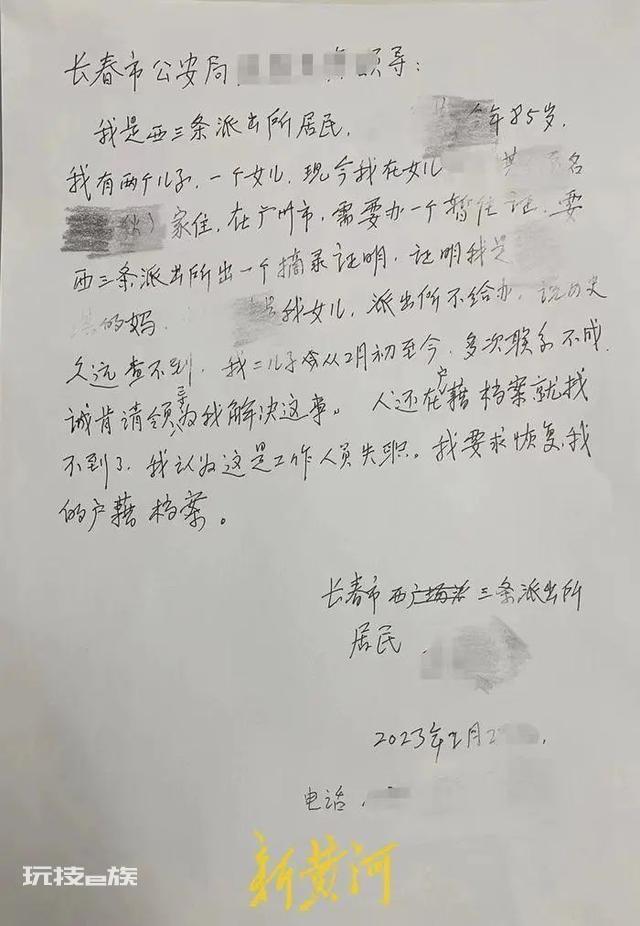 长春市公安局 领导:
我是西三条派出所居民, 今年85岁,
我有两个儿子,一个女儿,现今我在女儿 名
家住,在广州市,需要办一个暂住证,要
西三条派出所出一个摘录证明,证明我是
的妈, 是我女儿,派出所不给办,说历史
久远查不到,我二儿子从2月初至今,多次联系不成,
诚肯请领导为我解决这事。人还在户藉档案就找
不到了,我认为这是工作人员失职。我要求恢复我
的户藉档案。
长春市西三条派出所
居民
2023年2月2
电话
新黄河
玩技e族